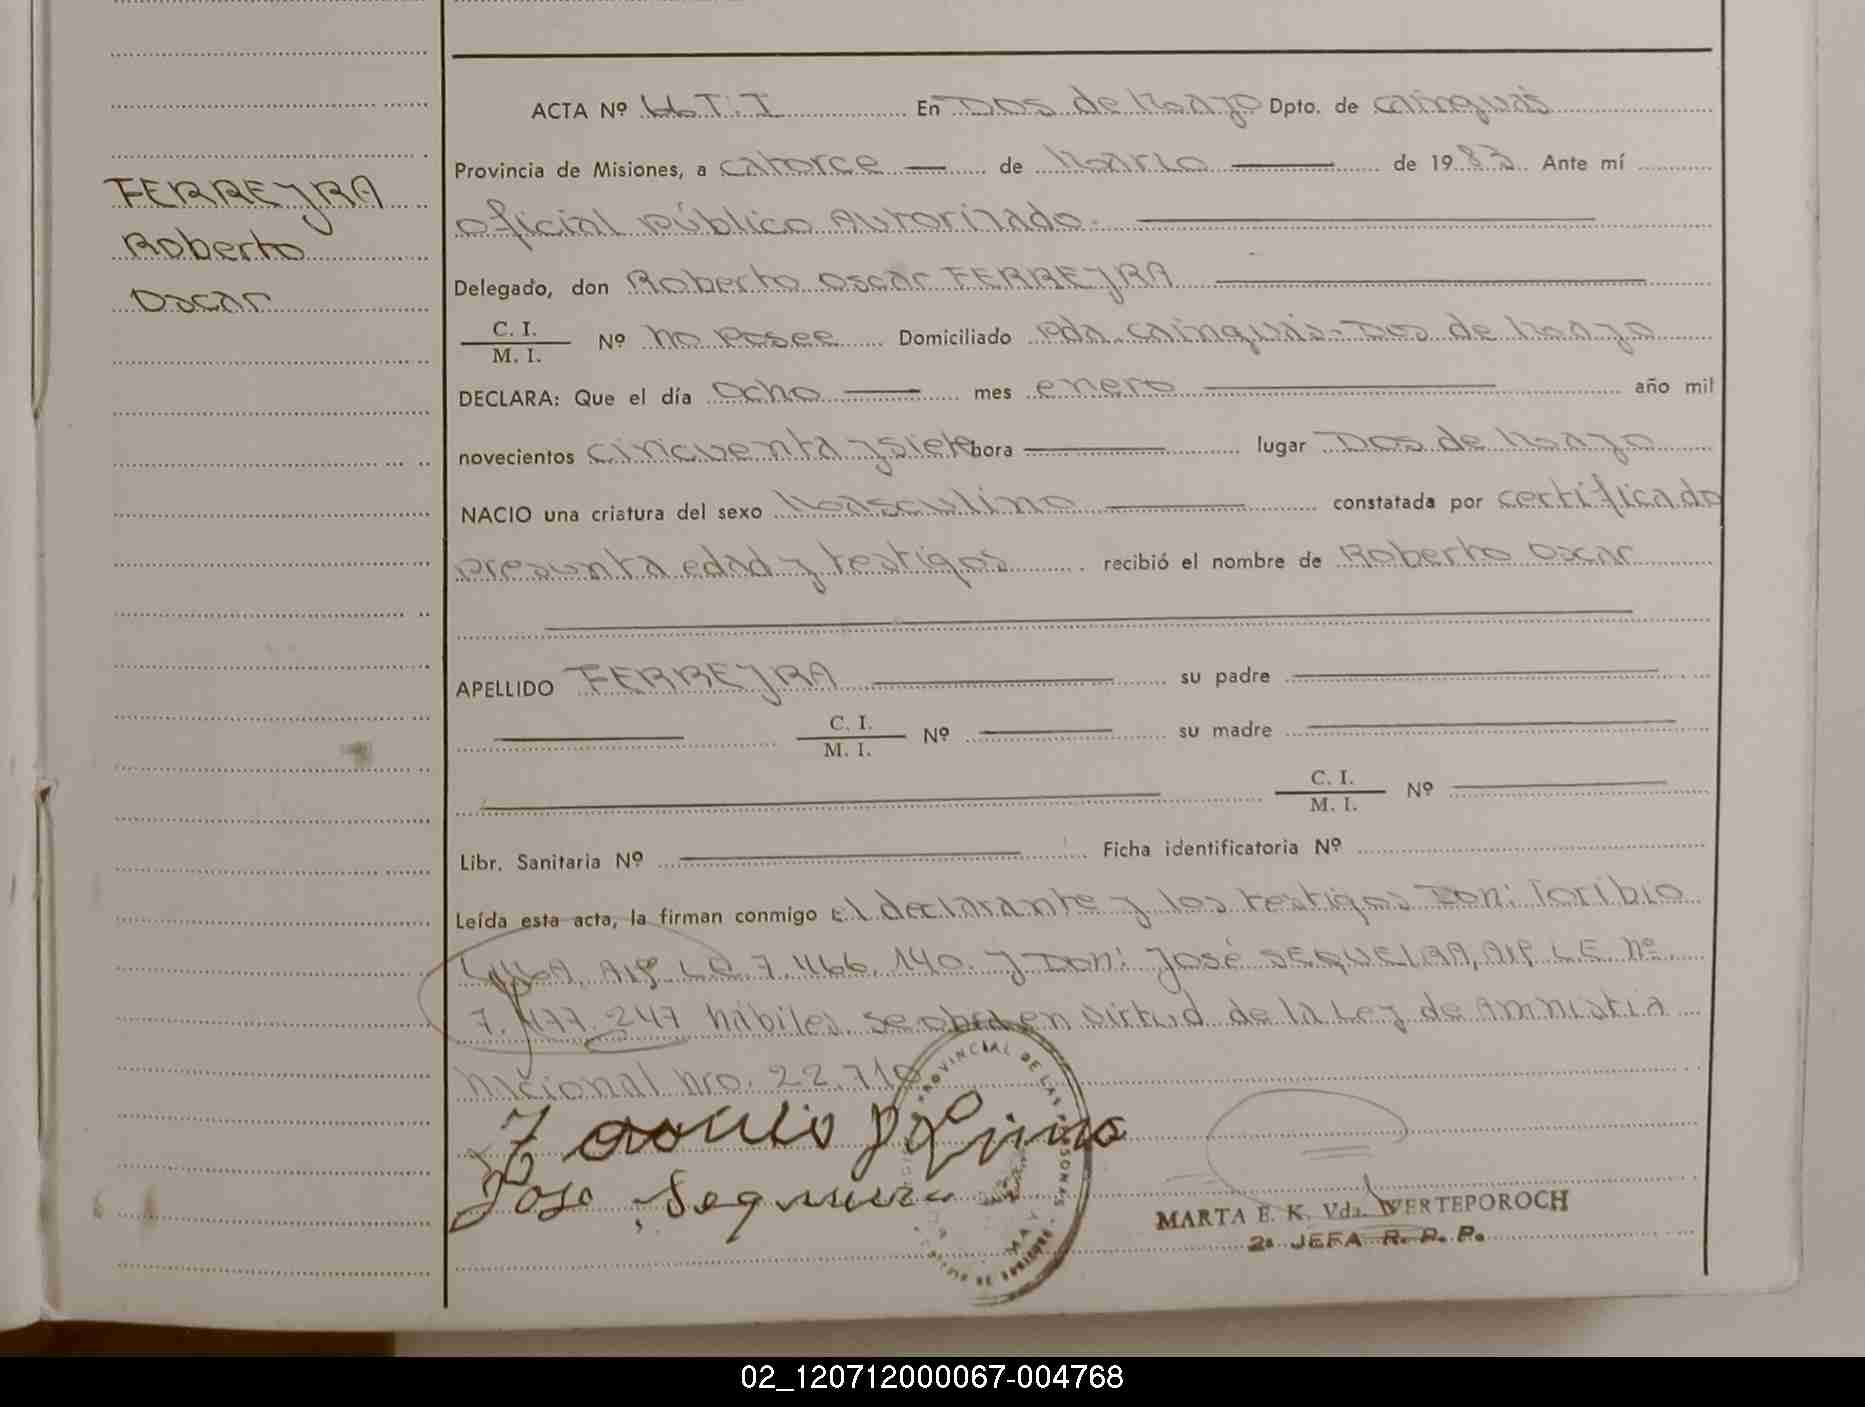 ACTA Nº 46 T. I En Dos de Mayo Dpto. de cainguás
Provincia de Misiones, a catorce de Marzo de 1983. Ante mí
oficial Público Autorizado.
FERREYRA
Roberto
Oscar
Delegado, don Roberto Oscar FERREYRA
C. I.
M. I. Nº no Posee Domiciliado Pda. Cainguás-Dos de Mayo
DECLARA: Que el día ocho mes enero año mil
novecientos cincuenta y siete hora lugar Dos de Mayo
NACIO una criatura del sexo Masculino constatada por certificado
presunta edad y testigos recibió el nombre de Roberto Oscar
APELLIDO FERREYRA su padre
C. I.
M. I. Nº su madre
C. I.
M. I. Nº
Libr. Sanitaria Nº Ficha identificatoria Nº
Leída esta acta, la firman conmigo el declarante y los testigos Don: Toribio
7.466.140. y Don: José SEQUEIRA, M.I.
7.477.247 hábiles. Se obra en virtud de la Ley de Amnistia
nacional nro. 22.710
Jose Sequeira
PROVINCIAL DE LAS PERSONAS
MARTA E. K. Vda. WERTEPOROCH
2ª JEFA R. P. P.
02_120712000067-004768